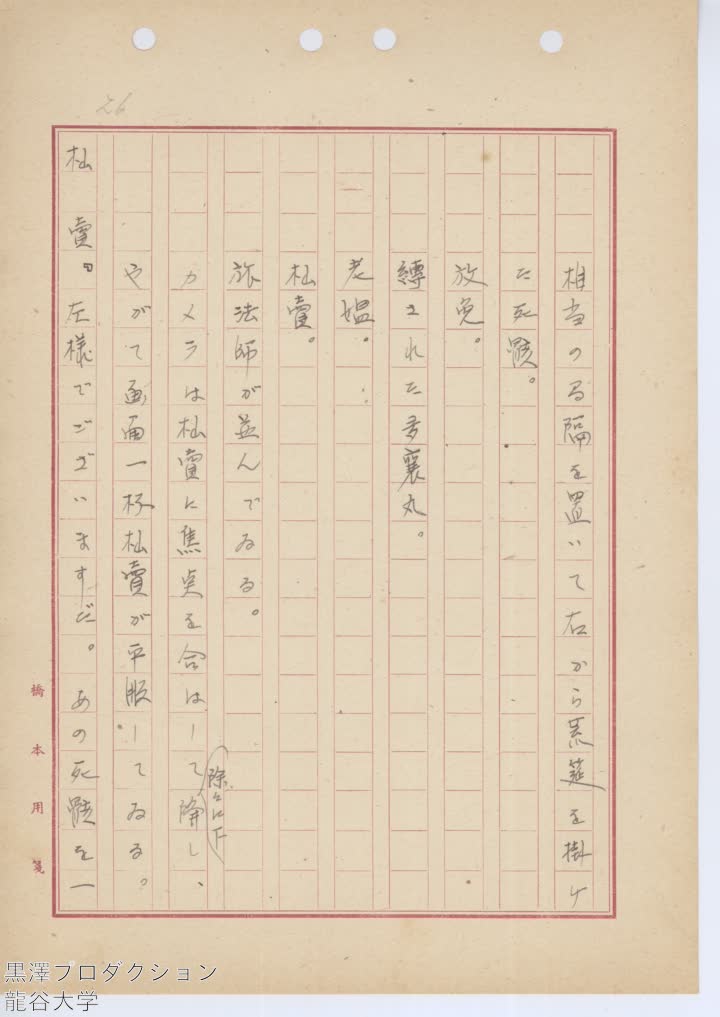 26
相当の間隔を置いて右から荒筵を掛け
た死骸。
放免。
縛された多襄丸。
老媼。
杣賣。
旅法師が並んでゐる。
カメラは杣賣に焦点を合はして降し、
除々に下
やがて画面一杯杣賣が平服してゐる。
杣賣「左様でございますだ。あの死骸を一
橋本用箋
黒澤プロダクション
龍谷大学